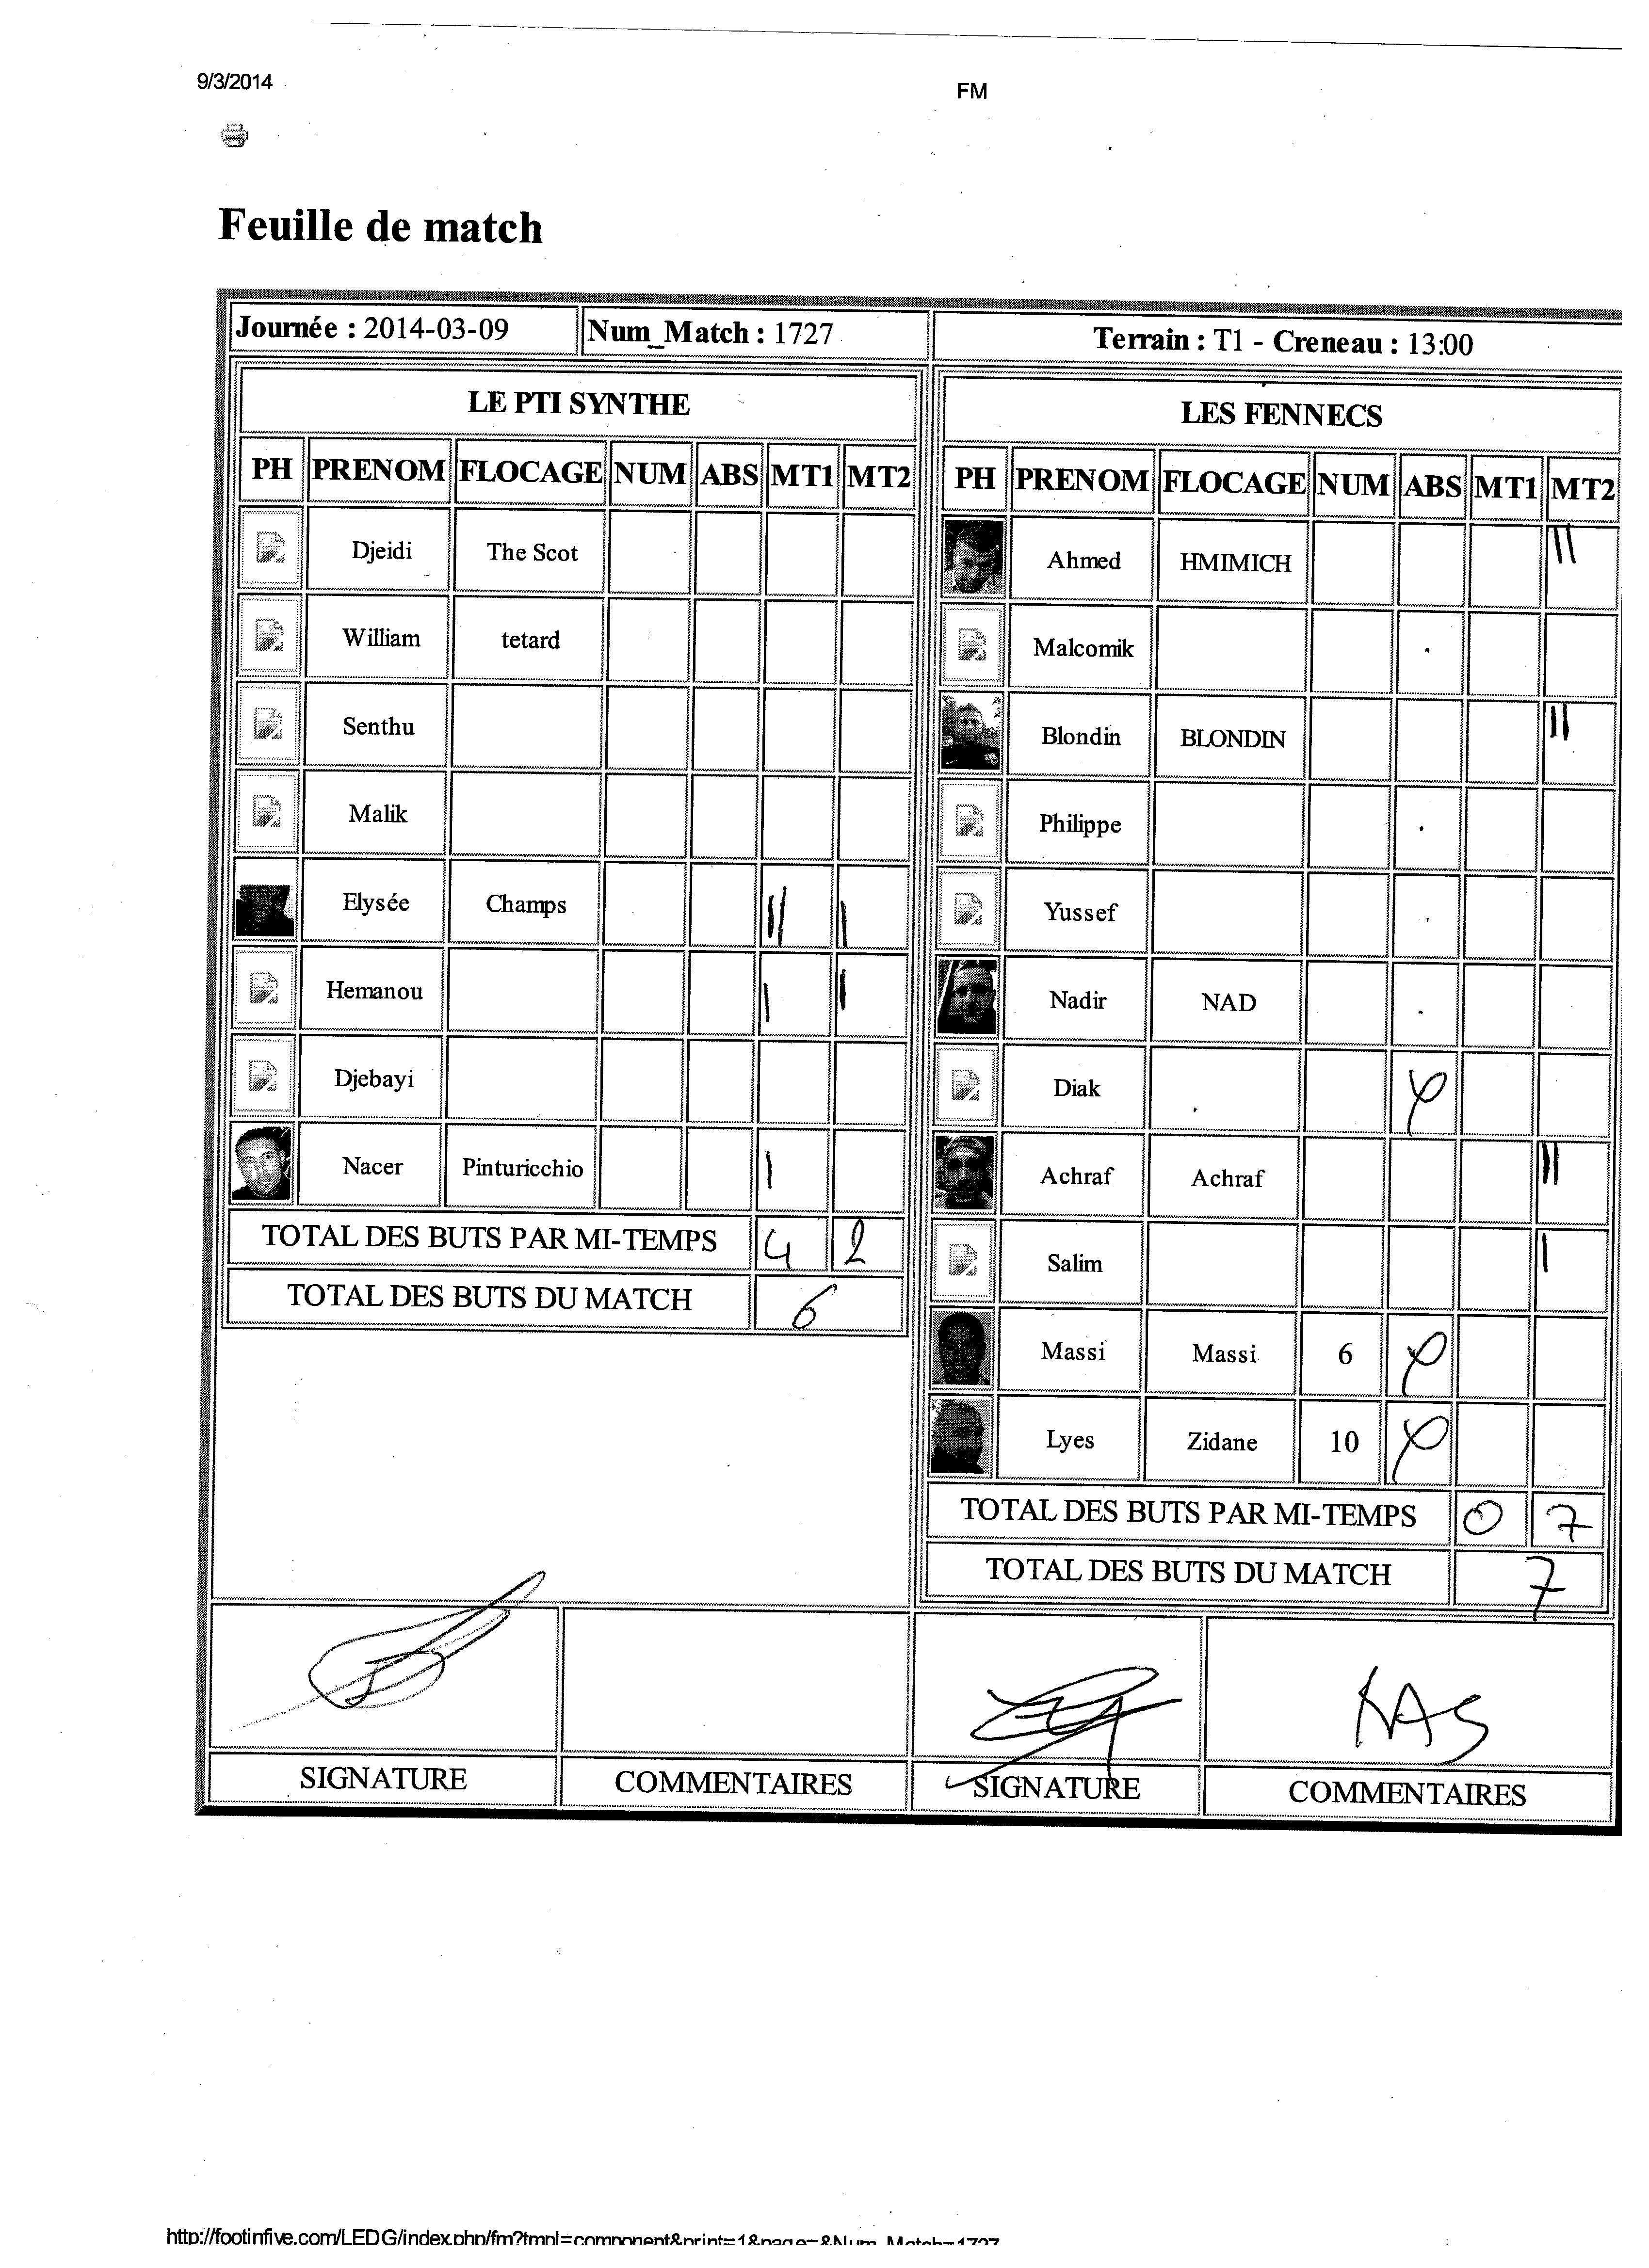 9/3/2014
FM
Feuille de match
Journée : 2014-03-09 Num_Match : 1727 Terrain : T1 - Creneau : 13:00
LE PTI SYNTHE
PH PRENOM FLOCAGE NUM ABS MT1 MT2
Djeidi The Scot
William tetard
Senthu
Malik
Elysée Champs II I
Hemanou I I
Djebayi
Nacer Pinturicchio I
TOTAL DES BUTS PAR MI-TEMPS 4 2
TOTAL DES BUTS DU MATCH 6
LES FENNECS
PH PRENOM FLOCAGE NUM ABS MT1 MT2
Ahmed HMIMICH II
Malcomik
Blondin BLONDIN II
Philippe
Yussef
Nadir NAD
Diak
Achraf Achraf II
Salim I
Massi Massi 6
Lyes Zidane 10
TOTAL DES BUTS PAR MI-TEMPS 0 7
TOTAL DES BUTS DU MATCH 7
RAS
SIGNATURE COMMENTAIRES SIGNATURE COMMENTAIRES
http://footinfive.com/LEDG/index.php/fm?tmpl=component&print=1&page=&Num_Match=1727